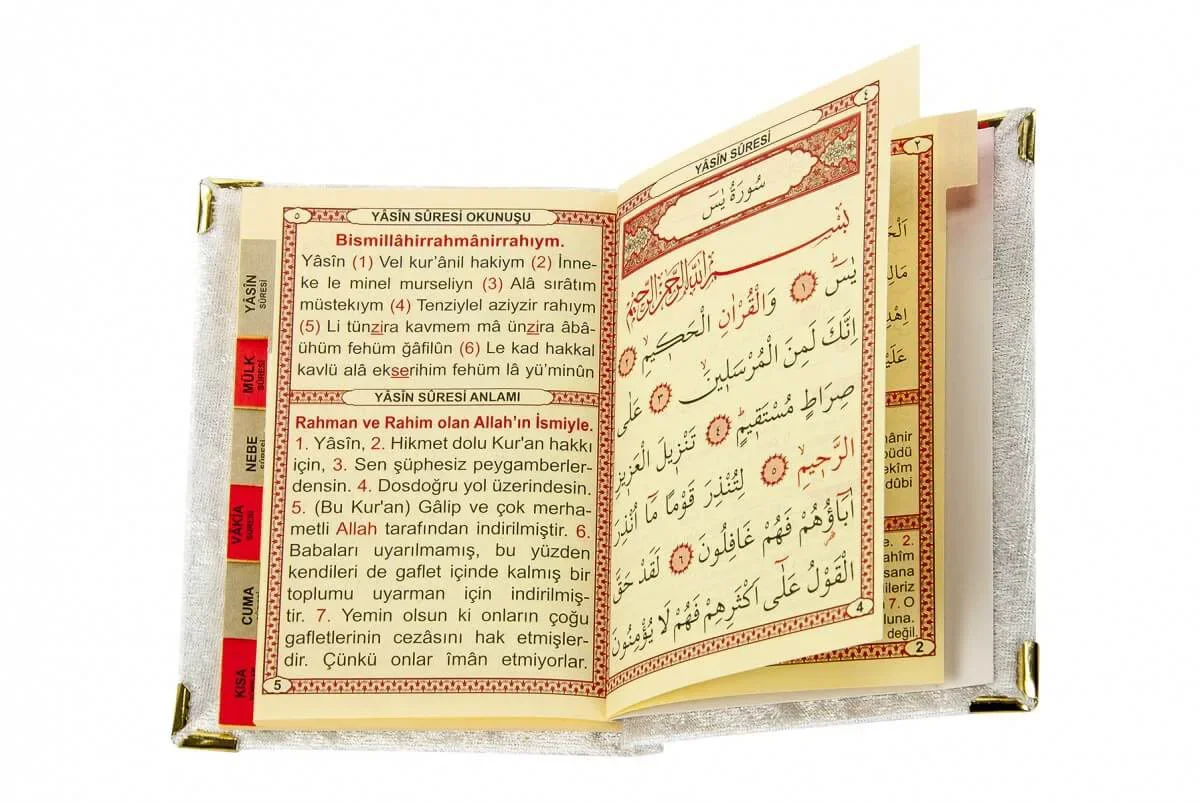 ٥
YÂSÎN SÛRESİ OKUNUŞU
Bismillâhirrahmânirrahıym.
Yâsîn (1) Vel kur’ânil hakiym (2) İnne-
ke le minel murseliyn (3) Alâ sırâtım
müstekıym (4) Tenziylel aziyzir rahıym
(5) Li tünzira kavmem mâ ünzira âbâ-
ühüm fehüm ğâfilûn (6) Le kad hakkal
kavlü alâ ekserihim fehüm lâ yü’minûn
YÂSÎN SÛRESİ ANLAMI
Rahman ve Rahim olan Allah’ın İsmiyle.
1. Yâsîn, 2. Hikmet dolu Kur'an hakkı
için, 3. Sen şüphesiz peygamberler-
densin. 4. Dosdoğru yol üzerindesin.
5. (Bu Kur'an) Gâlip ve çok merha-
metli Allah tarafından indirilmiştir. 6.
Babaları uyarılmamış, bu yüzden
kendileri de gaflet içinde kalmış bir
toplumu uyarman için indirilmiş-
tir. 7. Yemin olsun ki onların çoğu
gafletlerinin cezâsını hak etmişler-
dir. Çünkü onlar îmân etmiyorlar.
5
YÂSÎN
SÛRESİ
MÜLK
SÛRESİ
NEBE
SÛRESİ
VÂKIA
SÛRESİ
CUMA
KISA
٤
YÂSÎN SÛRESİ
سُورَةُ يٰسٓ
بِسْمِ اللّٰهِ الرَّحْمٰنِ الرَّحِيمِ
يٰسٓ ﴿١﴾ وَالْقُرْاٰنِ الْحَكِيمِ ﴿٢﴾
اِنَّكَ لَمِنَ الْمُرْسَلِينَ ﴿٣﴾ عَلٰى
صِرَاطٍ مُسْتَقِيمٍ ﴿٤﴾ تَنْزِيلَ الْعَزِيزِ
الرَّحِيمِ ﴿٥﴾ لِتُنْذِرَ قَوْمًا مَٓا اُنْذِرَ
اٰبَٓاؤُ۬هُمْ فَهُمْ غَافِلُونَ ﴿٦﴾ لَقَدْ حَقَّ
الْقَوْلُ عَلٰٓى اَكْثَرِهِمْ فَهُمْ لَا يُؤْمِنُونَ
4
٢
مَالِ
اِهْدِ
عَلَيْ
2.
7. O
değil.
2